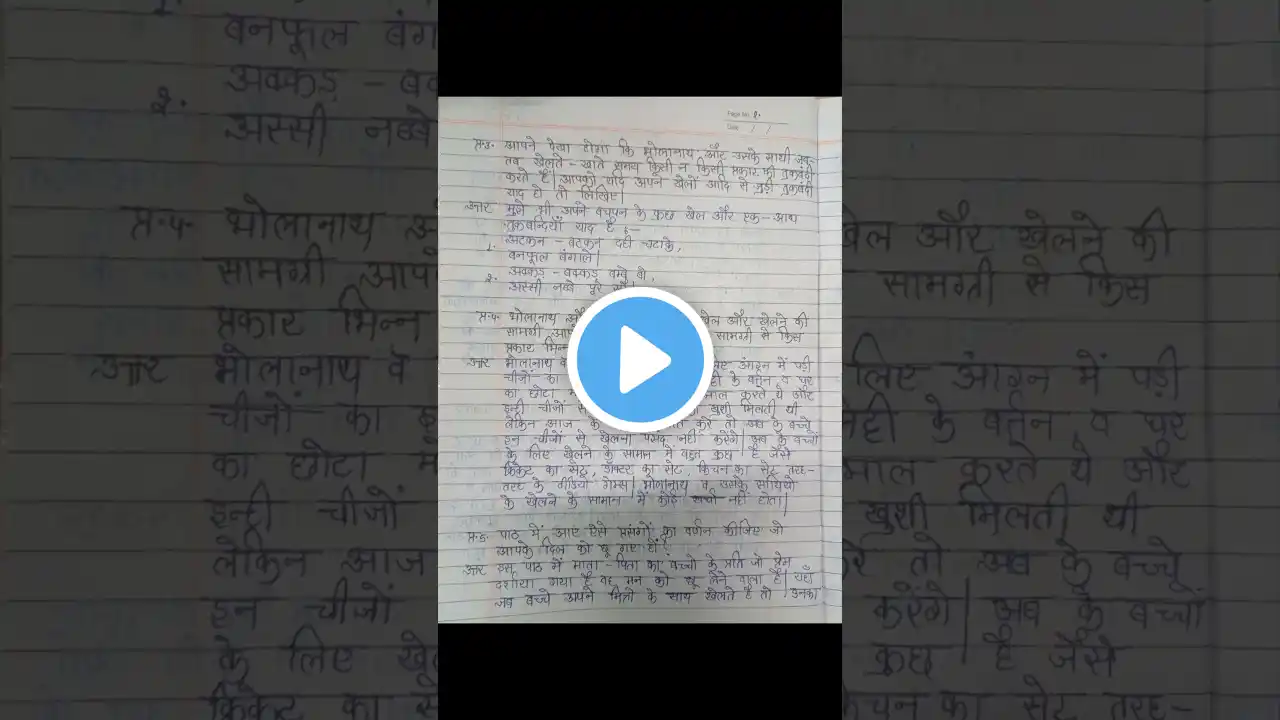 Page No. 2.
Date / /
प्र-3. आपने देखा होगा कि भोलानाथ और उसके साथी जब-
तब खेलते-खाते समय किसी न किसी प्रकार की तुकबंदी
करते हैं। आपको यदि अपने खेलों आदि से जुड़ी तुकबंदी
याद हो तो लिखिए।
उत्तर मुझे भी अपने बचपन के कुछ खेल और एक-आध
तुकबन्दियाँ याद हैं :-
1. अटकन - बटकन दही चटाके,
बनफूल बंगाले।
2. अक्कड़ - बक्कड़ बम्बे बो,
अस्सी नब्बे पूरे सौ।
प्र-4. भोलानाथ और खेल और खेलने की
सामग्री आपके सामग्री से किस
प्रकार भिन्न
उत्तर भोलानाथ व लिए आंगन में पड़ी
चीजों का के बर्तन व घर
का छोटा करते थे और
इन्ही चीजों खुशी मिलती थी
लेकिन आज करे तो अब के बच्चे
इन चीजों से खेलना पसंद नहीं करेंगे। अब के बच्चों
के लिए खेलने के सामान में बहुत कुछ है जैसे
क्रिकेट का सेट, डॉक्टर का सेट, किचन का सेट, तरह-
तरह के वीडियो गेम्स। भोलानाथ व उसके साथियों
के खेलने के सामान में कोई खर्चा नहीं होता।
प्र-5. पाठ में आए ऐसे प्रसंगों का वर्णन कीजिए जो
आपके दिल को छू गए हों।
उत्तर इस पाठ में माता-पिता का बच्चो के प्रति जो प्रेम
दर्शाया गया है वह मन को छू लेने वाला है। यहाँ
जब बच्चे अपने मित्रो के साथ खेलते है तो उनका